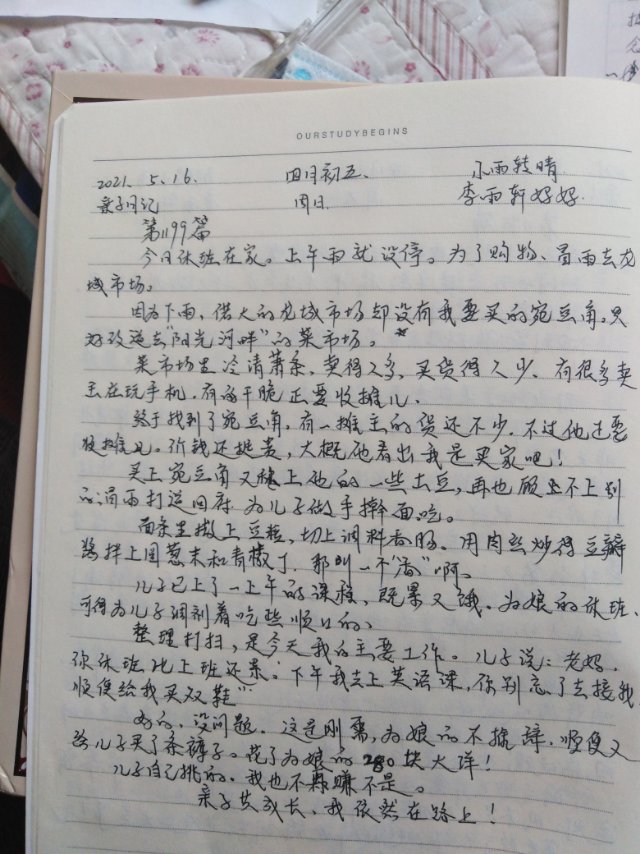 OURSTUDYBEGINS
2021. 5. 16. 四月初五、 小雨转晴
亲子日记 周日. 李雨轩好好.
第1199篇
今日休班在家。上午雨就没停。为了购物、冒雨去龙
城市场。
因为下雨，偌大的龙城市场却没有我要买的宛豆角。只
好改道去"阳光河畔"的菜市场。
菜市场里冷清萧条，卖得人多，买货得人少。有很多卖
主在玩手机，有的干脆正要收摊儿.
终于找到了宛豆角，有一摊主的货还不少. 不过他还要
收摊儿。价钱还挺贵，大概他看出我是买家吧！
买上宛豆角又 上他的一些土豆，再也顾不上别
的冒雨打道回府 为儿子做手擀面吃。
面条里撒上豆粒，切上调料香肠. 用肉丝炒得豆瓣
酱拌上圆葱末和青椒丁，那叫一个"香"啊。
儿子已上了一上午的课程，既累又饿。为娘的休班、
可得为儿子调剂着吃些顺口的、
整理打扫，是今天我的主要工作。儿子说：老妈.
你休班比上班还累。下午我去上英语课，你别忘了去接我
顺便给我买双鞋"
好的，没问题. 这是刚需，为娘的不推辞. 顺便又
给儿子买了条裤子。花了为娘的280块大洋！
儿子自己挑的. 我也不 赚不是。
亲子共成长，我依然在路上！